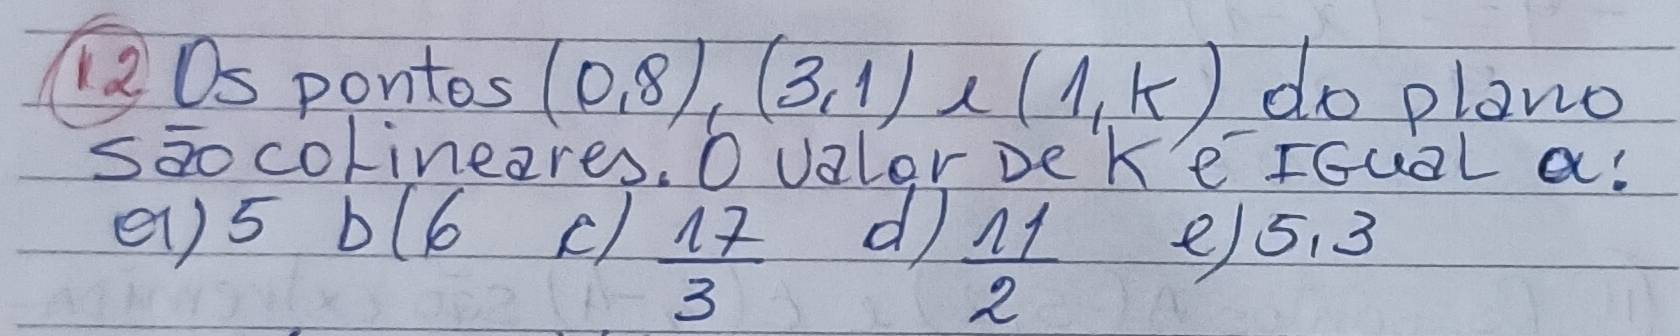 12 Os pontos (0,8), (3,1) e (1,K) do plano
são colineares. O valor De K é IGual a:
a) 5 b( 6 c) 17/3 d) 11/2 e) 5,3